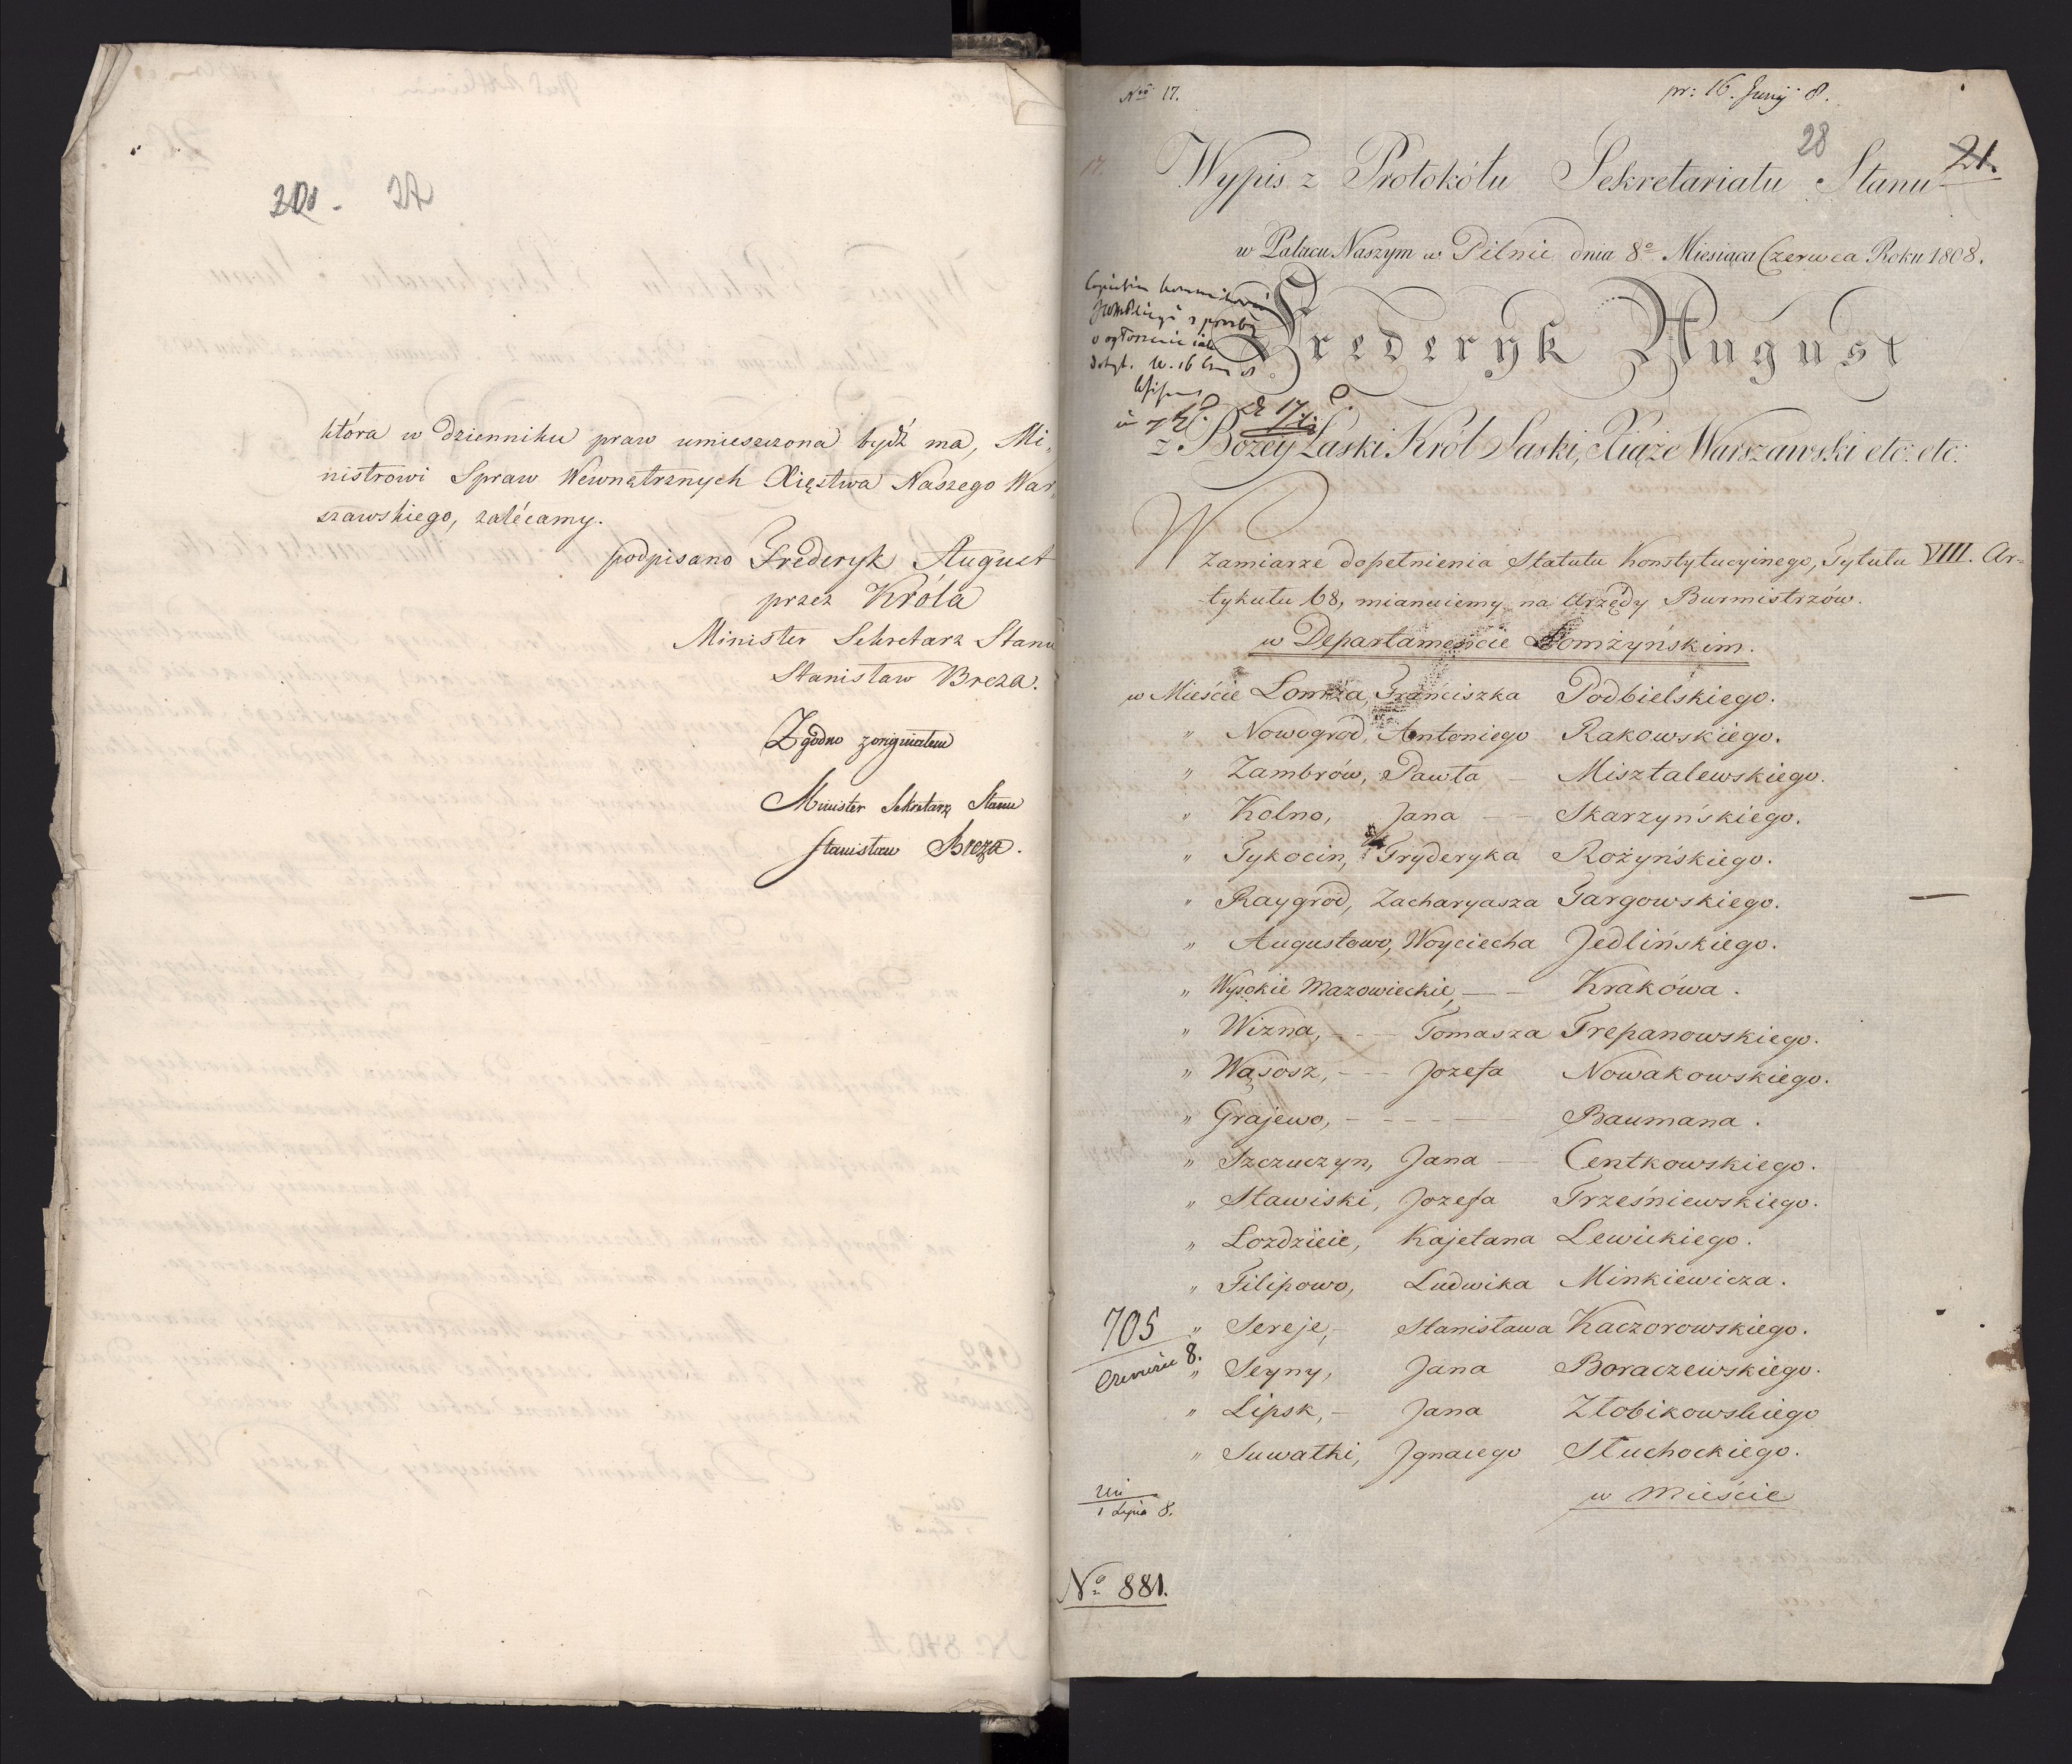 27
która w Dzienniku praw umieszczona bydź ma, Mi-
nistrowi Spraw Wewnętrznych Xięstwa Naszego War-
szawskiego, zalécamy.
podpisano Frederyk August
przez Króla
Minister Sekretarz Stanu
Stanisław Breza.
Zgodno z originałem
Minister Sekretarz Stanu
Stanisław Breza.
Nro 17.
pr: 16. Junij 8.
28
21.
17.
Wypis z Protokółu Sekretariatu Stanu
w Pałacu Naszym w Pilnic dnia 8o Miesiąca Czerwca Roku 1808.
Frederyk August
z Bożey Łaski Król Saski, Xiąże Warszawski etc: etc:
W
zamiarze dopełnienia Statutu Konstytucyinego, Tytułu VIII. Ar=
tykułu 68, mianuiemy na Urzędy Burmistrzów.
w Departamencie Łomżyńskim.
w Mieście Łomża, Franciszka Podbielskiego.
" Nowogrod, Antoniego Rakowskiego.
" Zambrów, Pawła - Misztalewskiego.
" Kolno, Jana - - Skarzyńskiego.
" Tykocin, Fryderyka Rożyńskiego.
" Raygrod, Zacharyasza Gargowskiego.
" Augustowo, Woyciecha Jedlińskiego.
" Wysokie Mazowieckie, - - Krakówa.
" Wizna, - - - Tomasza Trepanowskiego.
" Wąsosz, - - - Jozefa Nowakowskiego.
" Grajewo, - - - - - Baumana.
" Szczuczyn, Jana - Centkowskiego.
" Stawiski, Jozefa Trześniewskiego.
" Łozdzieie, Kajetana Lewickiego.
" Filipowo, Ludwika Minkiewicza.
" Sereje, - Stanisława Kaczorowskiego.
" Seyny, Jana Boraczewskiego.
" Lipsk, - Jana Złobikowskiego
" Suwałki, Jgnacego Słuchockiego.
w Mieście
705
Czerwiec 8.
1 Lipca 8.
No 881.